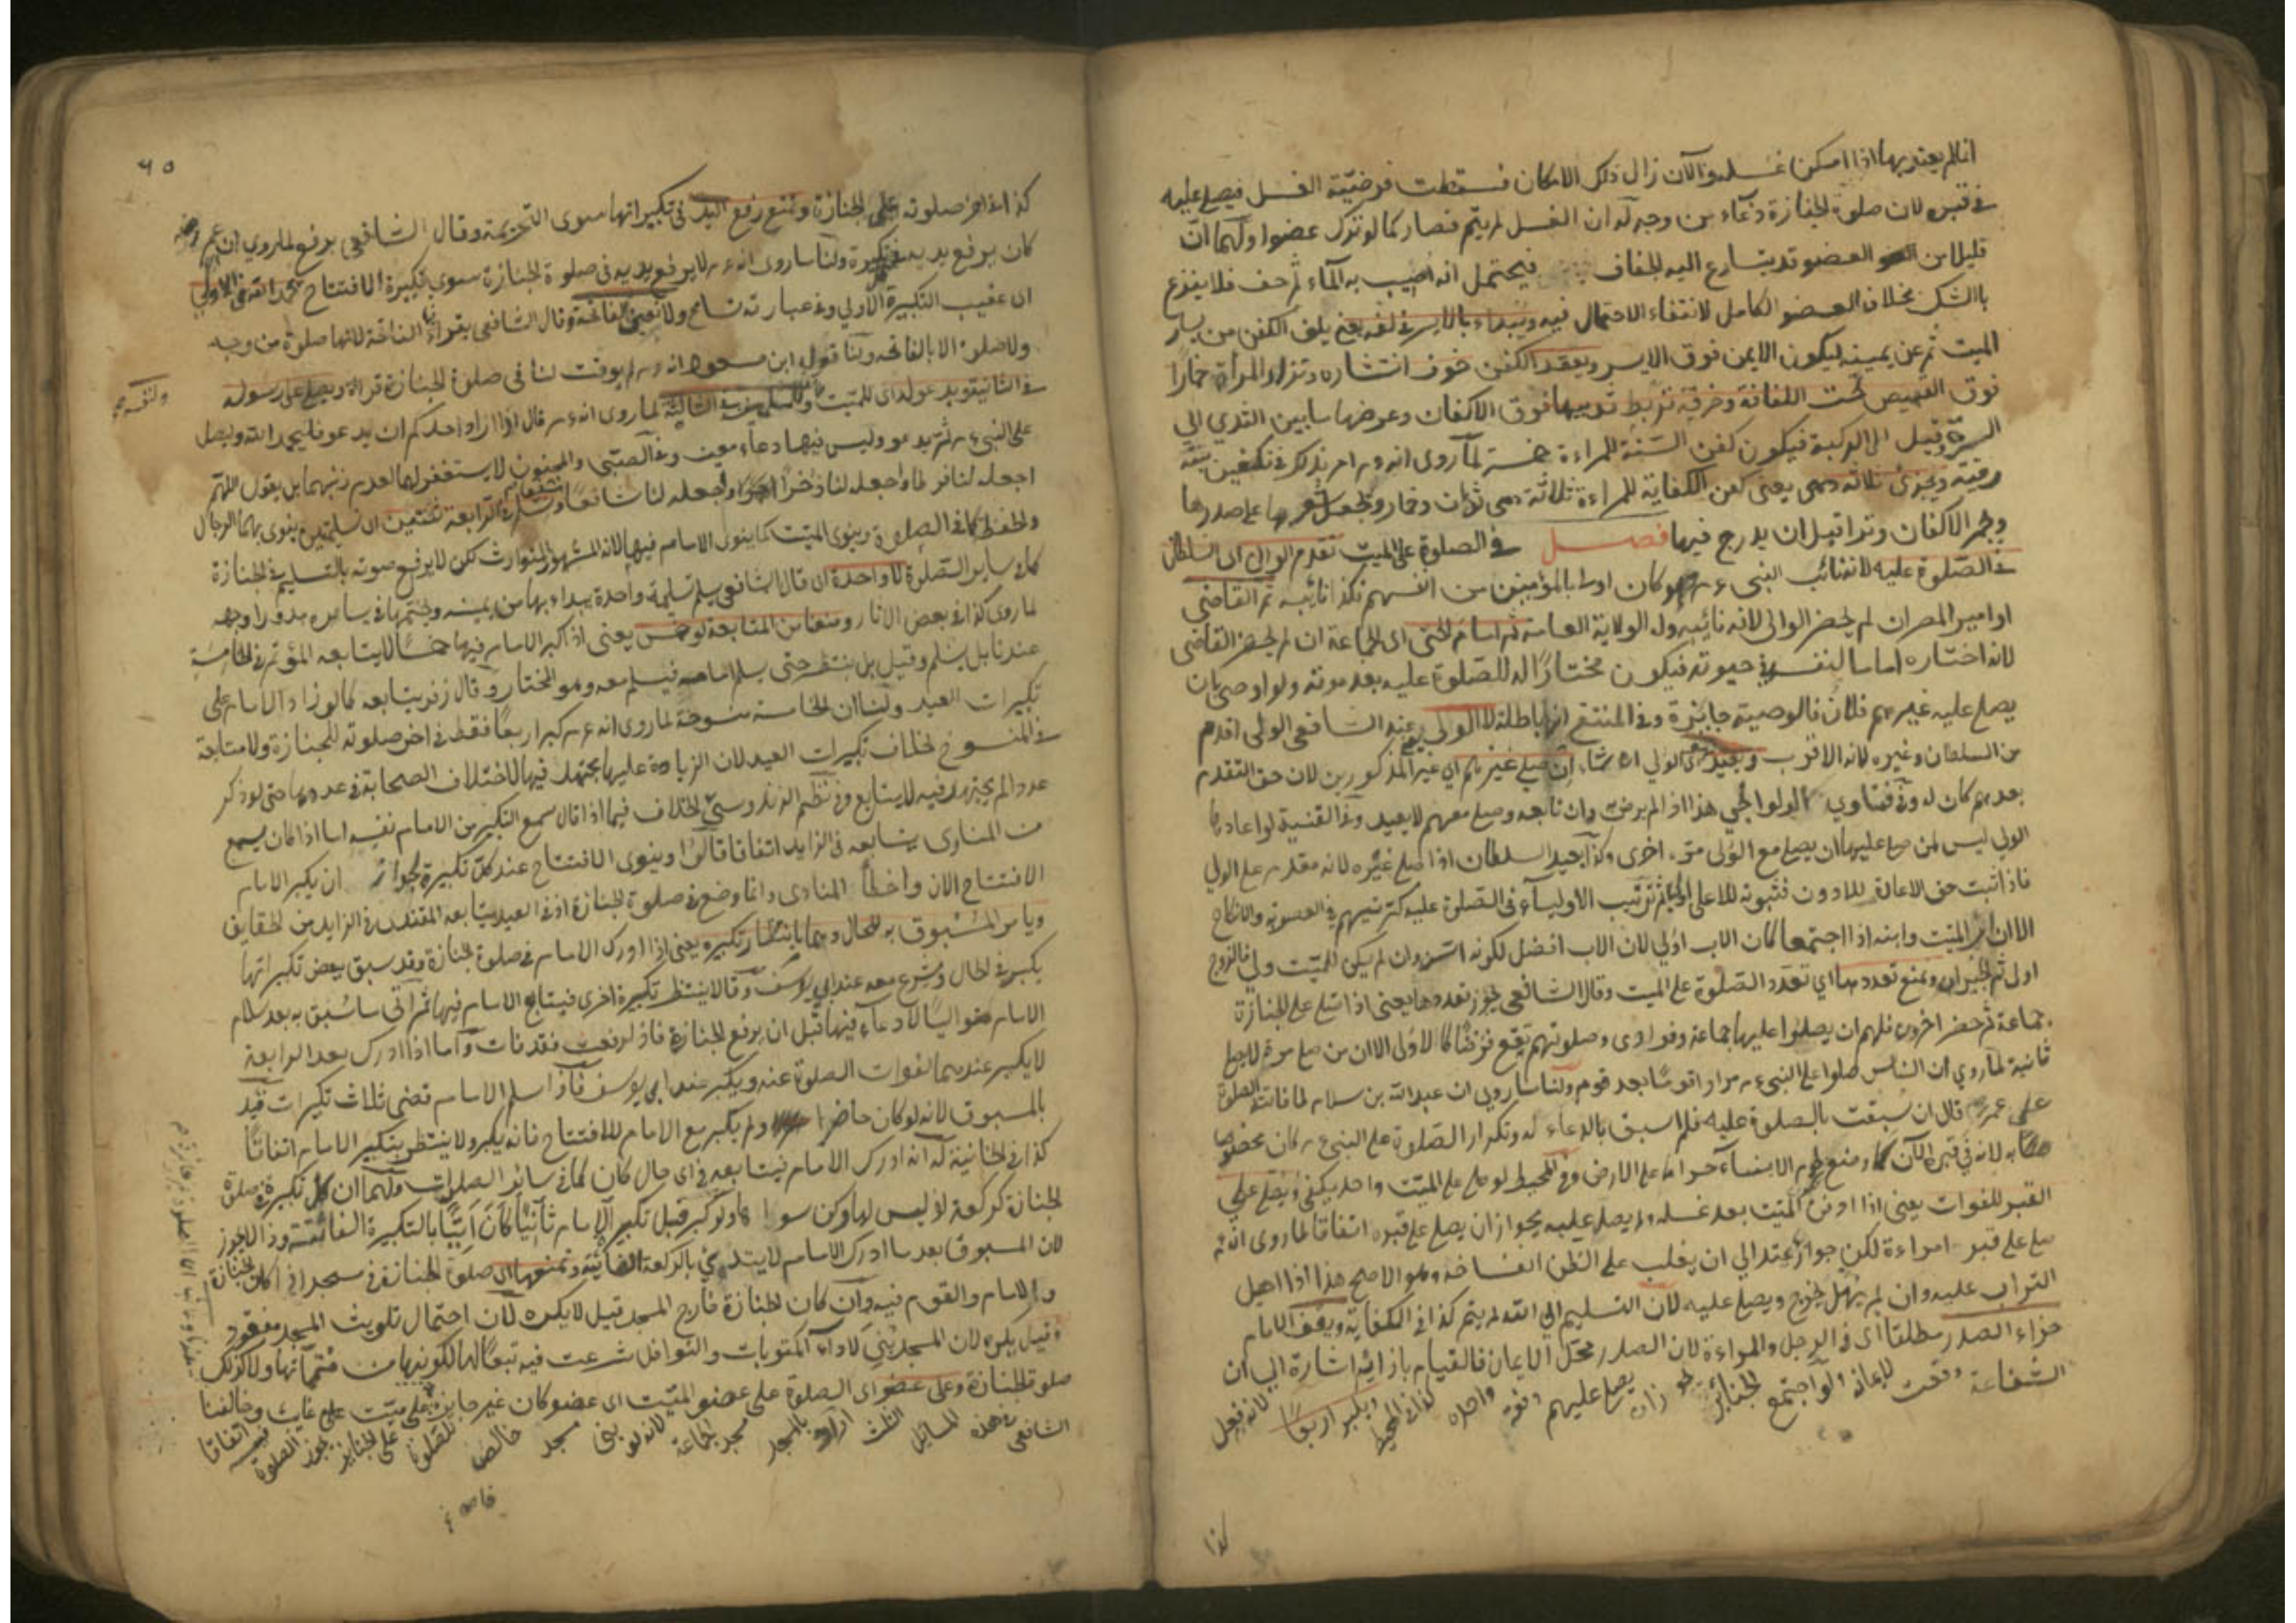 انما لم يعتد بها اذا امكن غسله والآن زال ذلك الامكان فسقطت فرضيّة الغسل فيصلى عليه
في قبره لان صلوة الجنازة دعاء من وجه له ان الغسل لم يتم فصار كما لو ترك عضوا ولهما ان
قليلا من العضو قد يتسارع اليه الجفاف فيحتمل انه اصيب به الماء ثم جف فلا ينزع
بالشك بخلاف العضو الكامل لانتفاء الاحتمال فيه ويبداء بالايسر في لفه يعني يلف الكفن من يسار
الميت ثم عن يمينه ليكون الايمن فوق الايسر ويعقد الكفن خوف انتشاره وتزاد المرأة خمارا
فوق القميص تحت اللفافة وخرقة تربط ثدييها فوق الاكفان وعرضها ما بين الثدي الى
السرة وقيل الى الركبة فيكون كفن السنة للمراءة خمسة لما روى انه امر بذلك في تكفين بنته
رقية ويجزئ ثلاثة وهي يعني كفن الكفاية للمراءة ثلاثة وهي ثوبان وخمار ويجعل شعرها على صدرها
ويجمر الاكفان وترا قبل ان يدرج فيها فصل في الصلوة على الميت تقدم الوالي اي السلطان
في الصلوة عليه لانه نائب النبي وهو كان اولى بالمؤمنين من انفسهم فكذا نائبه ثم القاضي
او امير المصر ان لم يحضر الوالي لانه نائبه وله الولاية العامة ثم امام الحي اي الجماعة ان لم يحضر القاضي
لانه اختاره اماما لنفسه في حيوته فيكون مختارا له للصلوة عليه بعد موته ولو اوصى بان
يصلى عليه غيرهم فلان فالوصية جايزة وفي المنتقى انها باطلة لا الولي يعني عند الشافعي الولي اقدم
من السلطان وغيره لانه الاقرب ويعيد الولي ان شاء ان صلى غيرهم اي غير المذكورين لان حق التقدم
بعدهم كان له وفي فتاوي الولوالجي هذا اذا لم يرض به وان تابعه وصلى معهم لا يعيد وفي القنية لو اعادها
الولي ليس لمن صلى عليها ان يصلى مع الولي مرة اخرى وكذا يعيد السلطان اذا صلى غيره لانه مقدم على الولي
فاذا ثبت حق الاعادة للادون فثبوته للاعلى اولى ثم ترتيب الاولياء في الصلوة عليه كترتيبهم في العصوبة والانكاح
الا ان اب الميت وابنه اذا اجتمعا كان الاب اولى لان الاب افضل لكونه اسن وان لم يكن للميت ولي فالزوج
اولى ثم الجيران ونمنع تعددها اي تعدد الصلوة على الميت وقال الشافعي يجوز تعددها يعني اذا صلى على الجنازة
جماعة ثم حضر اخرون فلهم ان يصلوا عليها جماعة وفرادى وصلوتهم تقع فرضا كالاولى الا ان من صلى مرة لا يصلى
ثانية لما روي ان الناس صلوا على النبي مرارا قوما بعد قوم ولنا ما روي ان عبد الله بن سلام لما فاتته الصلوة
على عمر قال ان سبقت بالصلوة عليه فلم اسبق بالدعاء له وتكرار الصلوة على النبي كان مخصوصا
به لانه في قبره الآن كما وضع لحوم الانبياء حرام على الارض وفي المحيط لو صلى على الميت واحد يكفي ويصلى على
القبر للفوات يعني اذا دفن الميت بعد غسله ولم يصل عليه يجوز ان يصلى على قبره اتفاقا لما روى انه
صلى على قبر امراءة لكن جوازه عندنا الى ان يغلب على الظن انفساخه وهو الاصح هذا اذا اهيل
التراب عليه وان لم يهل يخرج ويصلى عليه لان التسليم الى الله لم يتم كذا في الكفاية ويقف الامام
حذاء الصدر مطلقا اي في الرجل والمراءة لان الصدر محل الايمان فالقيام بازائه اشارة الى ان
الشفاعة وقعت لايمانه ولو اجتمع الجنائز يصلى عليهم دفعة واحدة كذا في المحيط ويكبر اربعا لانه فعل
كذا
٦٥
كذا في اخر صلوته على الجنازة ونمنع رفع اليد في تكبيراتها سوى التحريمة وقال الشافعي يرفع لما روي ان عمر
كان يرفع يديه في تكبيرة ولنا ما روى انه لا يرفع يديه في صلوة الجنازة سوى تكبيرة الافتتاح نحمد الله في الاولى
اي عقيب التكبيرة الاولي وفي عبارته تسامح ولا نعين الفاتحة وقال الشافعي يقراء الفاتحة لانها صلوة من وجه
ولا صلوة الا بالفاتحة ولنا قول ابن مسعود انه لم يوقت لنا في صلوة الجنازة قراءة ويصلى على رسوله
في الثانية ويدعو له اي للميت وللمسلمين في الثالثة لما روى انه قال اذا اراد احدكم ان يدعو فليحمد الله وليصل
على النبي ثم يدعو وليس فيها دعاء معين وفي الصبي والمجنون لا يستغفر لهما لعدم ذنبهما بل يقول اللهم
اجعله لنا فرطا واجعله لنا ذخرا واجعله لنا شافعا وسلم في الرابعة تسليمتين ينوي بهما الرجال
والحفظة كما في الصلوة وينوى الميت كما ينوى الامام فيها لانه المشهور المتوارث لكن لا يرفع صوته بالتسليم في الجنازة
كما في ساير الصلوة لا واحدة اي قال الشافعي يسلم تسليمة واحدة يبداء بها من يمينه ويختم بها في يساره مدورا وجهه
لما روى كذا في بعض الاثار ومنعنا من المتابعة لو خمس يعني اذا كبر الامام فيها خمسا لا يتابعه المؤتم في الخامسة
عندنا بل يسلم وقيل بل ينتظر حتى يسلم امامه فيسلم معه وهو المختار وقال زفر يتابعه كما لو زاد الامام على
تكبيرات العيد ولنا ان الخامسة منسوخة لما روى انه كبر اربعا فقط في اخر صلوته للجنازة ولا متابعة
في المنسوخ بخلاف تكبيرات العيد لان الزيادة عليها مجتهد فيها لاختلاف الصحابة في عددها حتى لو ذكر
عددا لم يجتهد فيه لا يتابع وفي نظم الزندوستي الخلاف فيما اذا قال سمع التكبير من الامام نفسه اما اذا كان يسمع
من المنادى يتابعه في الزايد اتفاقا قالوا وينوى الافتتاح عند كل تكبيرة لجواز ان يكبر الامام
الافتتاح الان واخطأ المنادى وانما وضع في صلوة الجنازة اذ في العيد يتابعه المقتدى في الزايد من الحقايق
ويامر المسبوق به للحال وهما بانتظار تكبيره يعني اذا ادرك الامام في صلوة الجنازة وقد سبق بعض تكبيراتها
يكبر في الحال وشرع معه عند ابي يوسف وقالا ينتظر تكبيرة اخرى فيتابع الامام فيها ثم اتى ما سبق به بعد سلام
الامام متواليا لا دعاء فيها قبل ان يرفع الجنازة فاذا رفعت فقد فات واما اذا ادرك بعد الرابعة
لا يكبر عندهما لفوات الصلوة عنه ويكبر عند ابي يوسف فاذا سلم الامام قضى ثلاث تكبيرات قيد
بالمسبوق لانه لو كان حاضرا ولم يكبر مع الامام للافتتاح فانه يكبر ولا ينتظر بتكبير الامام اتفاقا
كذا في الخانية له انه ادرك الامام فيتابعه في اي حال كان كما في ساير الصلوات ولهما ان كل تكبيرة في صلوة
الجنازة كركعة اذ ليس لها ركن سواها ولو كبر قبل تكبير الامام ثانيا كان آتيا بالتكبيرة الفائتة وذا لا يجوز
لان المسبوق بعد ما ادرك الامام لا يبتدئ بالركعة الفائتة ونمنعها اي صلوة الجنازة في مسجد ان كان الجنازة
والامام والقوم فيه وان كان الجنازة خارج المسجد قيل لا يكره لان احتمال تلويث المسجد مفقود
وقيل يكره لان المسجد بني لاداء المكتوبات والنوافل شرعت فيه تبعا لها لكونها من متمماتها ولا كذلك
صلوة الجنازة وعلى عضو اي الصلوة على عضو الميت اي عضو كان غير جايزة وعلى ميت غايب وخالفنا
الشافعي في هذه المسائل الثلث اراد بالمسجد مسجد الجماعة لانه لو بنى مسجد خالص لصلوة على الجنايز يجوز الصلوة فيه اتفاقا